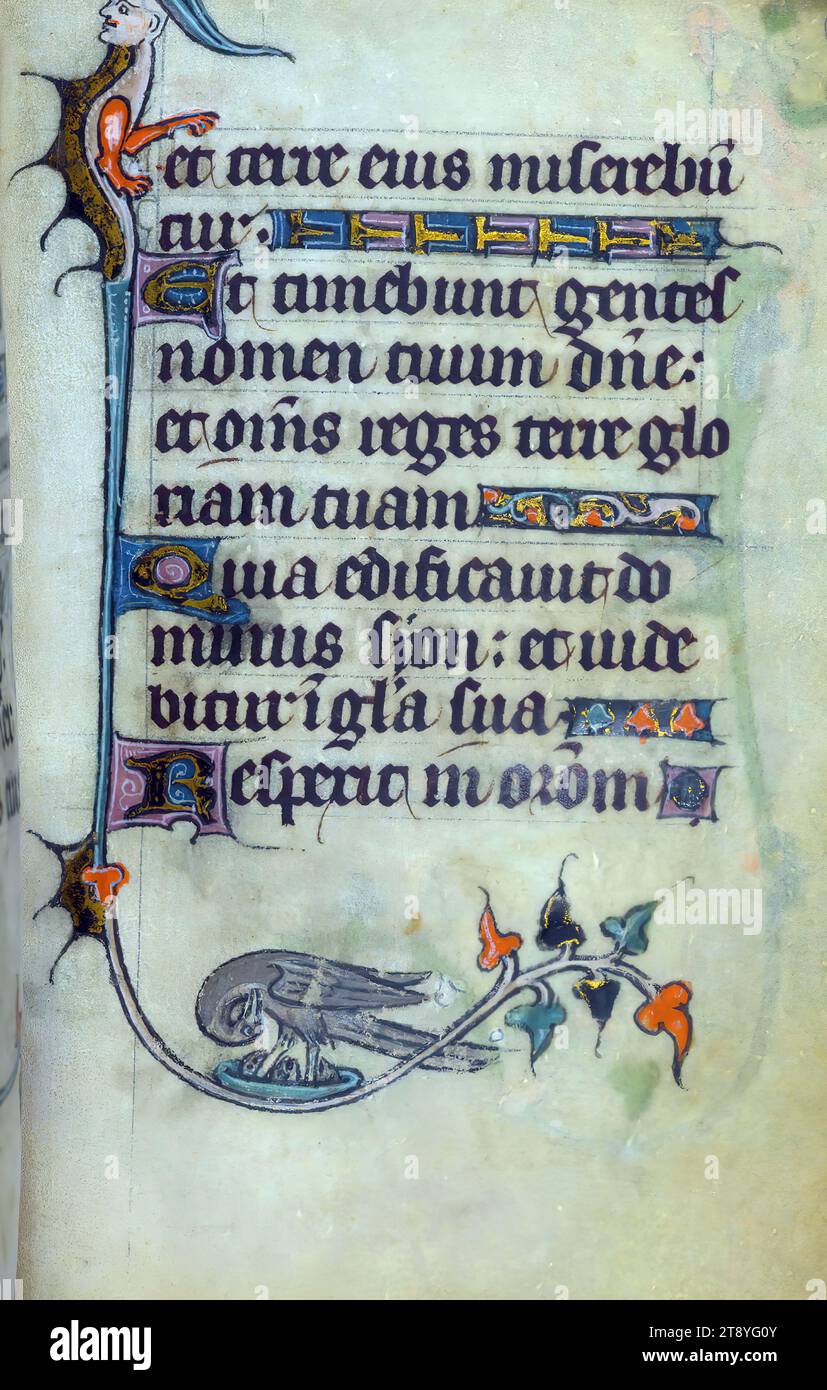 et terre eius miserebū
tur.
Et timebunt gentes
nomen tuum dn̄e:
et om̄s reges terre glo
riam tuam
Quia edificauit do
minus syon: et uide
bitur ī gl'a sua
Respexit ī orōm
alamy
alamy
Image ID: 2T8YG0Y
www.alamy.com